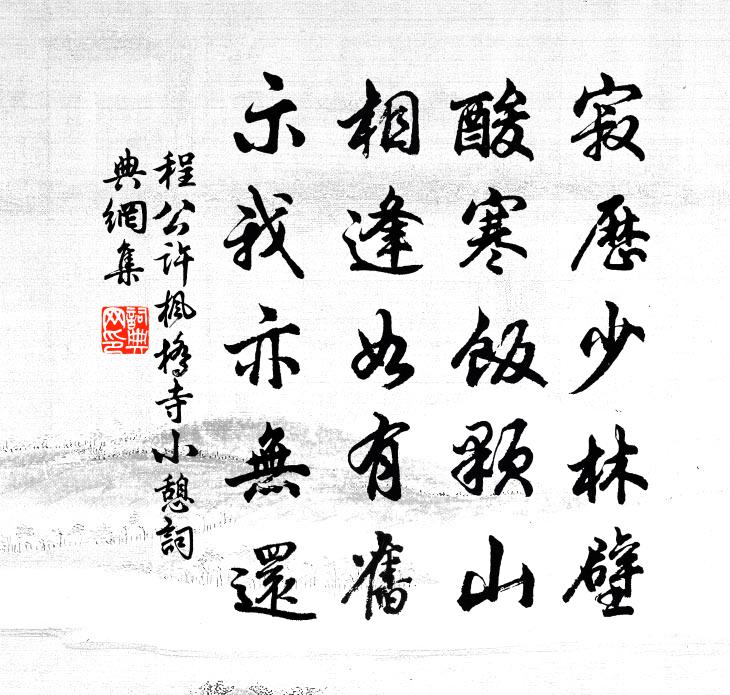 寂歷少林壁
酸寒飯顆山
相逢如有舊
示我亦無還
程公許楓橋寺小憩詞
典網集
詞典
网印